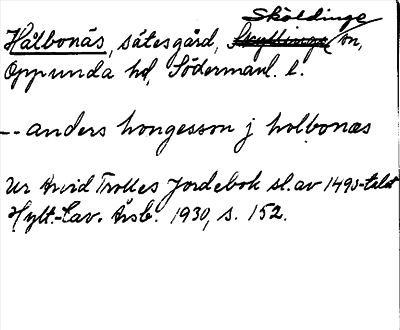 Hålbonäs, sätesgård, Sköldinge sn,
Oppunda hd, Södermanl. l.
-- anders hongesson j holbonæs
Ur Arvid Trolles Jordebok sl. av 1490-talet
Hylt.-Cav. Årsb. 1930, s. 152.